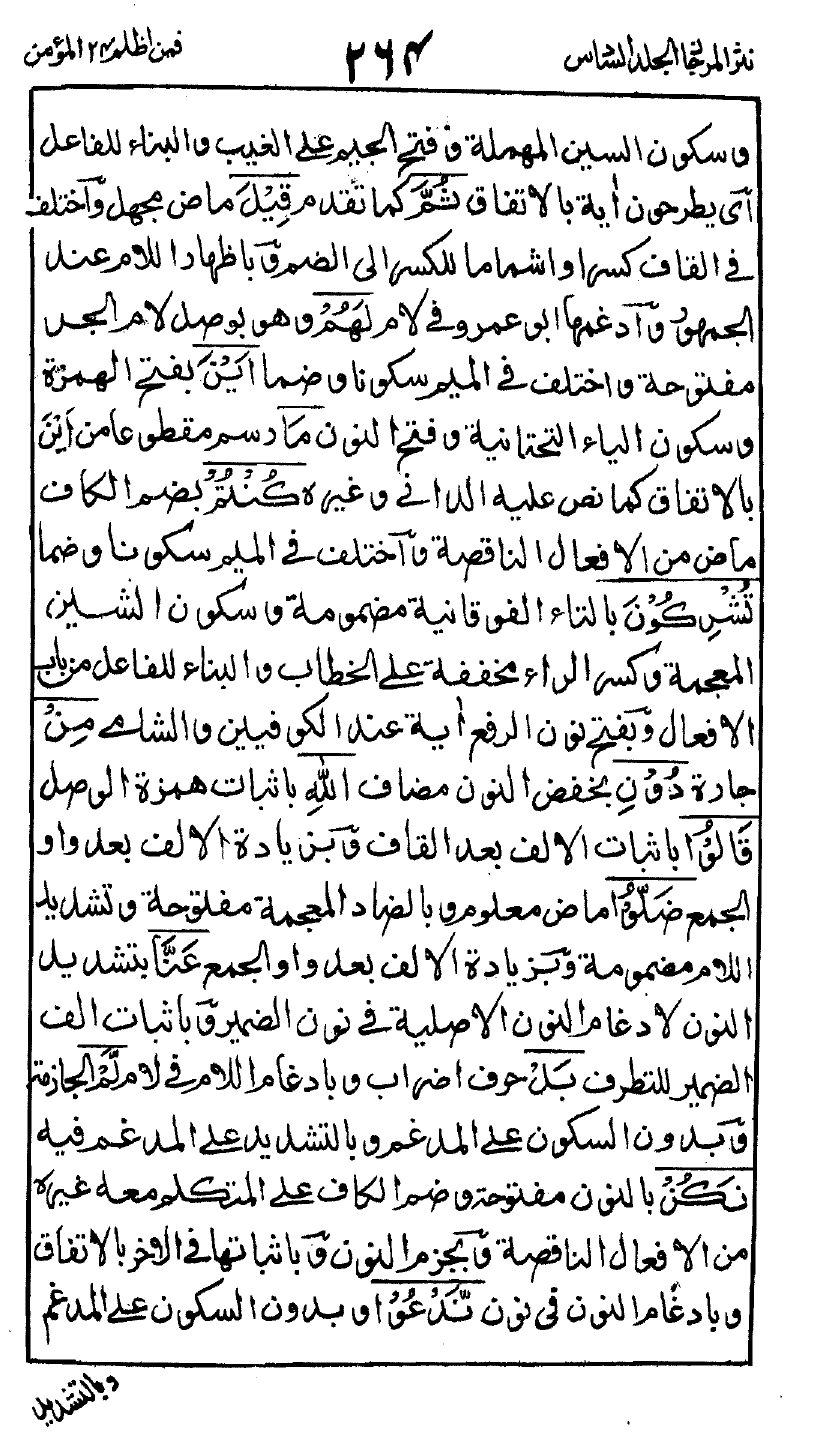 نثر المرجان الجلد السادس ٢٦٤ فمن اظلم ٢٤ المؤمن
وسكون السين المهملة وفتح الجيم على الغيب والبناء للفاعل
اى يطرحون اٰية بالاتفاق ثُمَّ كما تقدم قِيْلَ ماض مجهل وٓاختلف
فى القاف كسرا واشماما للكسر الى الضم وٓباظهار اللام عند
الجمهور وٓادغمها ابو عمرو فى لام لَهُمْ وهو بوصل لام الجر
مفتوحة واختلف فى الميم سكونا وضما اَيْنَ بفتح الهمزة
وسكون الياء التحتانية وفتح النون مَا رسم مقطوعا من اَيْنَ
بالاتفاق كما نص عليه الدانى وغيره كُنْتُمْ بضم الكاف
ماض من الافعال الناقصة وٓاختلف فى الميم سكونا وضما
تُشْرِكُوْنَ بالتاء الفوقانية مضمومة وسكون الشين
المعجمة وكسر الراء مخففة على الخطاب والبناء للفاعل من باب
الافعال وٓبفتح نون الرفع اٰية عند الكوفيين والشامى مِنْ
جارة دُوْنِ بخفض النون مضاف اللّٰهِ باثبات همزة الوصل
قَالُوْا باثبات الالف بعد القاف وٓبزيادة الالف بعد واو
الجمع ضَلُّوْا ماض معلوم وبالضاد المعجمة مفتوحة وتشديد
اللام مضمومة وٓبزيادة الالف بعد واو الجمع عَنَّا بتشديد
النون لادغام النون الاصلية فى نون الضمير وٓباثبات الف
الضمير للتطرف بَلْ حرف اضراب وبادغام اللام فى لام لَّمْ الجازمة
وٓبدون السكون على المدغم وبالتشديد على المدغم فيه
نَكُنْ بالنون مفتوحة وضم الكاف على المتكلم معه غيره
من الافعال الناقصة وٓبجزم النون وٓباثباتها فى الاخر بالاتفاق
وبادغام النون فى نون نَّدْعُوْا وبدون السكون على المدغم
وبالتشديد